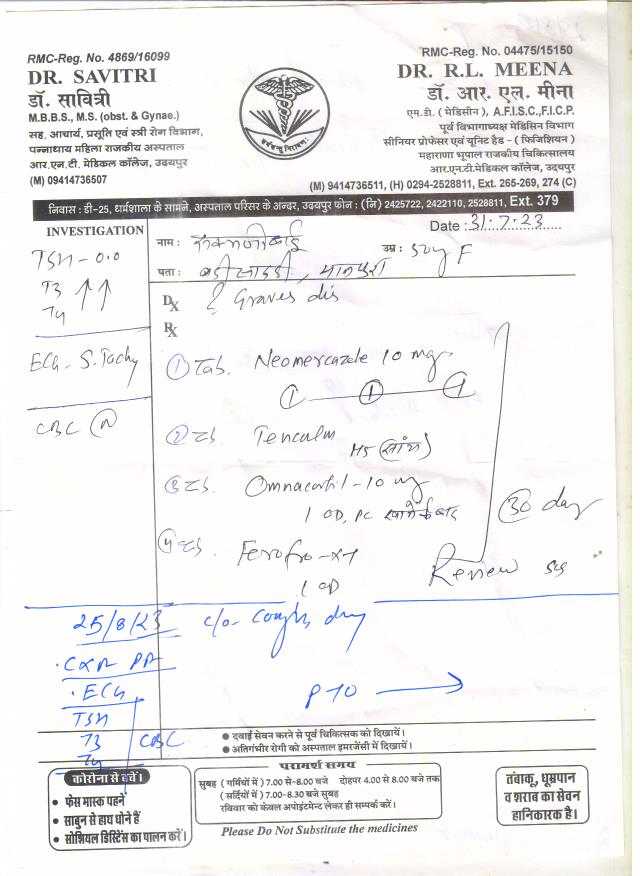 RMC-Reg. No. 4869/16099
DR. SAVITRI
डॉ. सावित्री
M.B.B.S., M.S. (obst. & Gynae.)
सह. आचार्य, प्रसूति एवं स्त्री रोग विभाग,
पन्नाधाय महिला राजकीय अस्पताल
आर.एन.टी. मेडिकल कॉलेज, उदयपुर
(M) 09414736507
RMC-Reg. No. 04475/15150
DR. R.L. MEENA
डॉ. आर. एल. मीना
एम.डी. ( मेडिसीन ), A.F.I.SC.,F.I.C.P.
पूर्व विभागाध्यक्ष मेडिसिन विभाग
सीनियर प्रोफेसर एवं यूनिट हैड - ( फिजिशियन )
महाराणा भूपाल राजकीय चिकित्सालय
आर.एन.टी.मेडिकल कॉलेज, उदयपुर
(M) 9414736511, (H) 0294-2528811, Ext. 265-269, 274 (C)
निवास : डी-25, धर्मशाला के सामने, अस्पताल परिसर के अन्दर, उदयपुर फोन : (नि) 2425722, 2422110, 2528811, Ext. 379
INVESTIGATION
TSH - 0.0
T3 ↑ ↑
T4
ECG - S. Tachy
CBC (N)
Date : 31.7.23
नाम :
उम्र : 50y F
पता : बडी सादडी,
Dx ? Graves dis
Rx
① Tab. Neomercazole 10 mg
1 — 1 — 1
② Tab. Tencalm
HS (सांय)
③ Tab. Omnacortil - 10 mg
1 OD, PC खाने के बाद
④ Tab. Ferofro-XT
1 OD
30 day
Review
25/8/23 c/o Cough, dry
CXR PA
ECG
TSH
T3 CBC
T4
PTO →
• दवाई सेवन करने से पूर्व चिकित्सक को दिखायें।
• अतिगंभीर रोगी को अस्पताल इमरजेंसी में दिखायें।
कोरोना से बचें।
• फेस मास्क पहनें
• साबुन से हाथ धोने हैं
• सोशियल डिस्टिेंस का पालन करें।
परामर्श समय
सुबह ( गर्मियों में ) 7.00 से-8.00 बजे दोहपर 4.00 से 8.00 बजे तक
( सर्दियों में ) 7.00-8.30 बजे सुबह
रविवार को केवल अपोइंटमेन्ट लेकर ही सम्पर्क करें।
Please Do Not Substitute the medicines
तंबाकू, धूम्रपान
व शराब का सेवन
हानिकारक है।